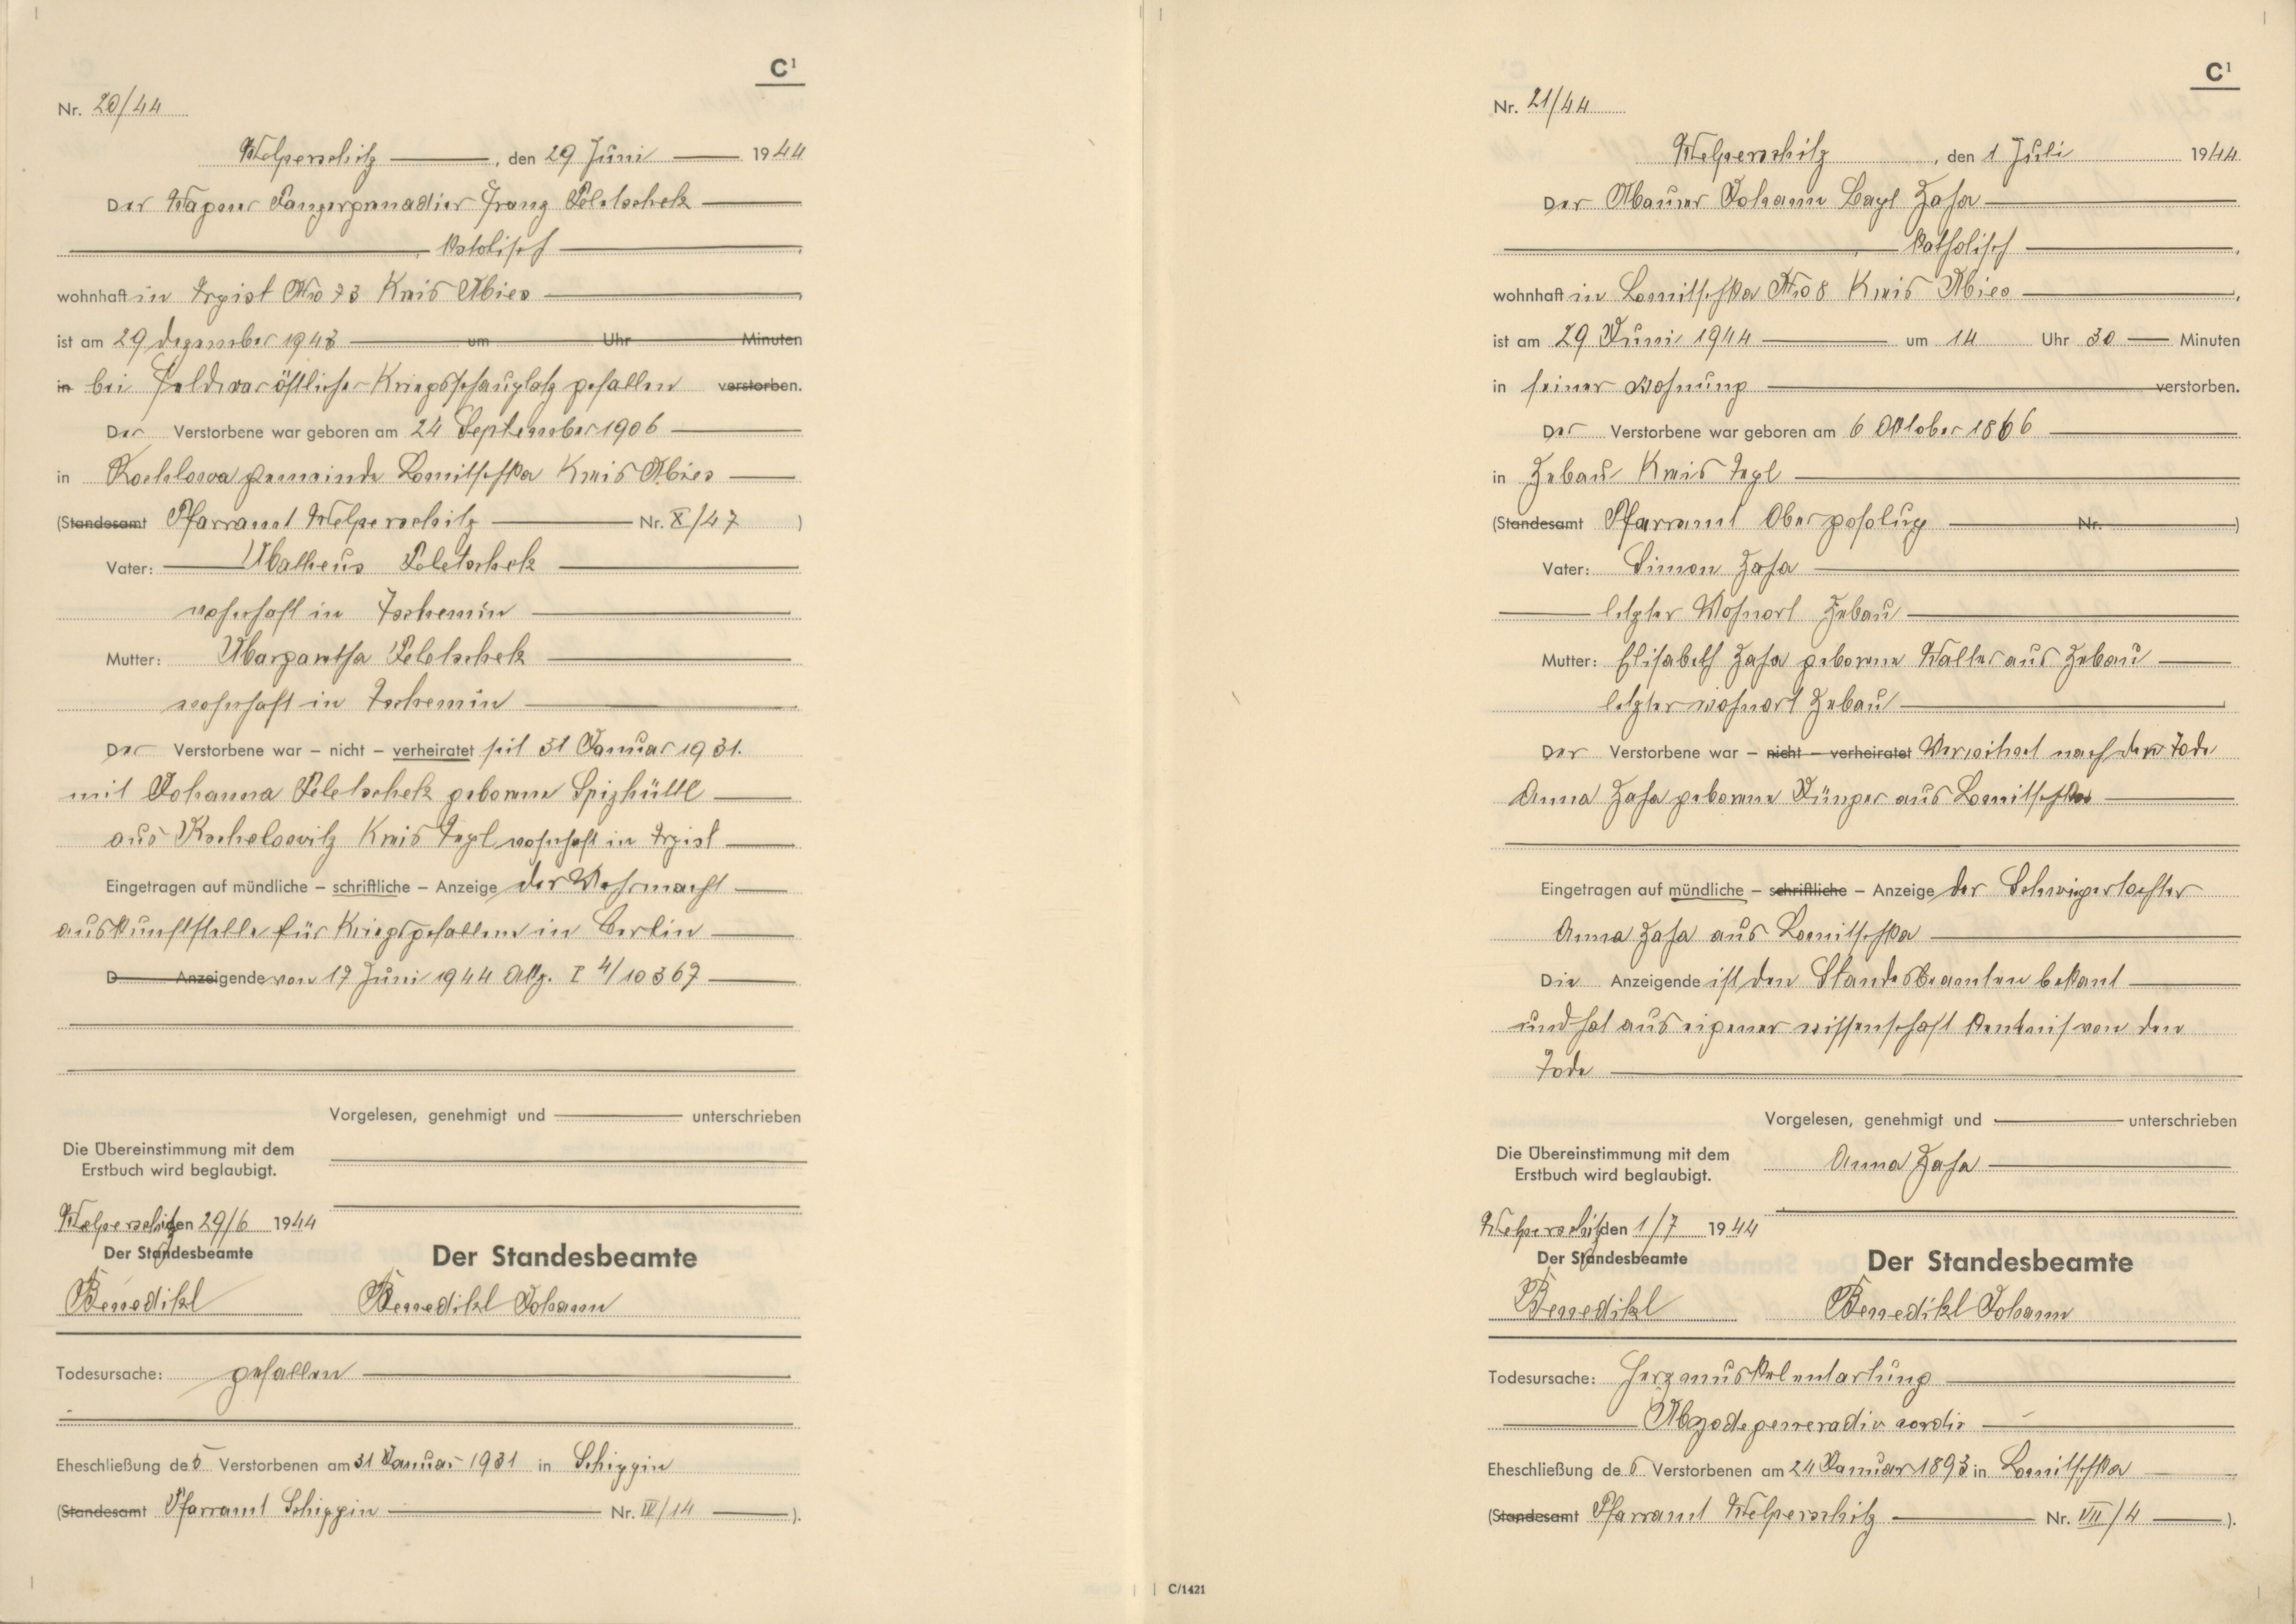 C¹
Nr. 20/44
Welperschitz, den 29 Juni 1944
Der Wagner Panzergrenadier Franz Peletschek
katolisch
wohnhaft in Trpist No 73 Kreis Mies
ist am 29 dezember 1943 um Uhr Minuten
in bei Feldwar östlicher Kriegsschauplatz gefallen verstorben.
Der Verstorbene war geboren am 24 September 1906
in gemeinde Lomitschka Kreis Mies
(Standesamt Pfarramt Welperschitz Nr. X/47)
Vater: Matheus Peletschek
wohnhaft in Tschemin
Mutter: Margaretha Peletschek
wohnhaft in Tschemin
Der Verstorbene war – nicht – verheiratet seit 31 Januar 1931.
mit Johanna Peletschek geborene Spizhüttl
aus Kreis Tepl wohnhaft in Trpist
Eingetragen auf mündliche – schriftliche – Anzeige der Wehrmacht
auskunftstelle für Kriegsgefallene in Berlin
D Anzeigende von 17 Juni 1944 Aktz. I 4/10367
Vorgelesen, genehmigt und unterschrieben
Die Übereinstimmung mit dem
Erstbuch wird beglaubigt.
Welperschitz den 29/6 1944
Der Standesbeamte
Der Standesbeamte
Benedikt
Benedikt Johann
Todesursache: gefallen
Eheschließung des Verstorbenen am 31 Januar 1931 in Schippin
(Standesamt Pfarramt Schippin Nr. IV/14).
C¹
Nr. 21/44
Welperschitz, den 1 Juli 1944
Der Maurer Johann Zaha
katholisch
wohnhaft in Lomitschka No 8 Kreis Mies
ist am 29 Juni 1944 um 14 Uhr 30 Minuten
in seiner Wohnung verstorben.
Der Verstorbene war geboren am 6 Oktober 1866
in Zebau Kreis Tepl
(Standesamt Pfarramt Nr.)
Vater: Simon Zaha
letzter Wohnort Zebau
Mutter: Elisabeth Zaha geborene Walter aus Zebau
letzter wohnort Zebau
Der Verstorbene war – nicht – verheiratet Verwitwet nach dem Tode
Anna Zaha geborene Jünger aus Lomitschka
Eingetragen auf mündliche – schriftliche – Anzeige der Schwigertochter
Anna Zaha aus Lomitschka
Die Anzeigende ist den Standesbeamten bekant
und hat aus eigener wissenschaft kentnis von den
Tode
Vorgelesen, genehmigt und unterschrieben
Die Übereinstimmung mit dem
Erstbuch wird beglaubigt.
Anna Zaha
Welperschitz den 1/7 1944
Der Standesbeamte
Der Standesbeamte
Benedikt
Benedikt Johann
Todesursache: Herzmuskelentartung
Eheschließung des Verstorbenen am 24 Januar 1893 in Lomitschka
(Standesamt Pfarramt Welperschitz Nr. VII/4).
C/1421